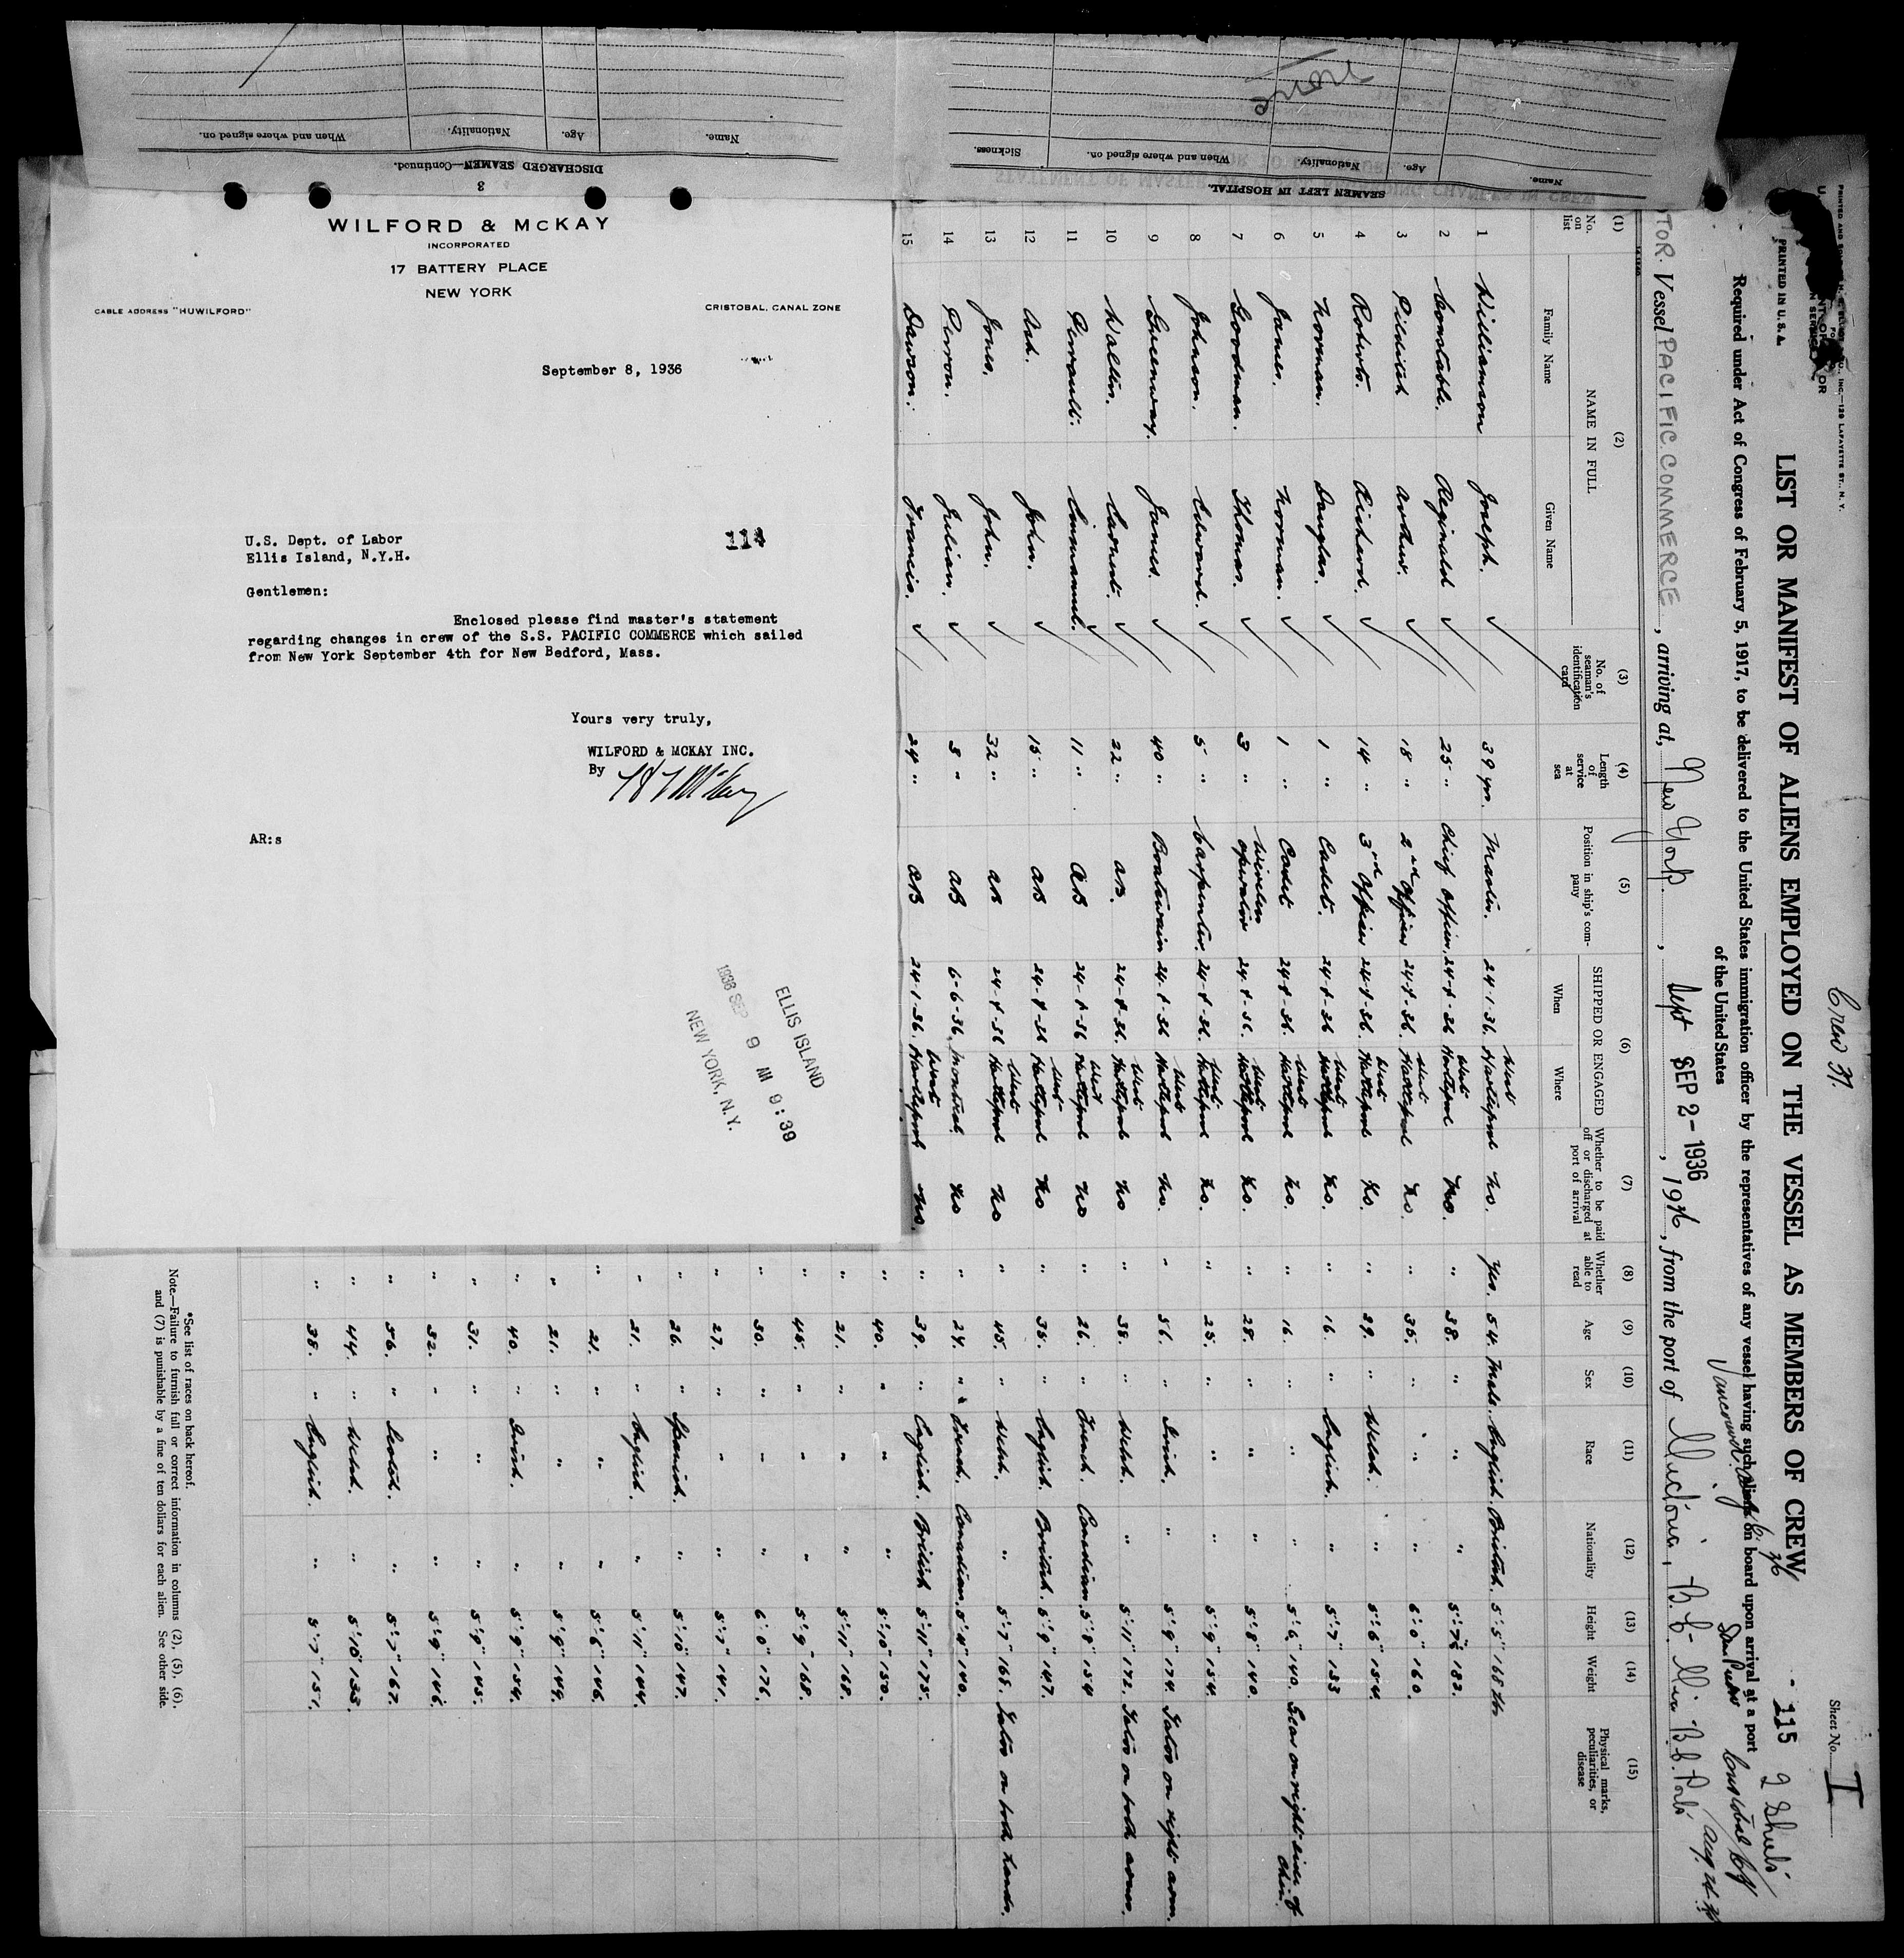 WILFORD & McKAY
INCORPORATED
17 BATTERY PLACE
NEW YORK
CABLE ADDRESS "HUWILFORD"
CRISTOBAL, CANAL ZONE
September 8, 1936
U.S. Dept. of Labor
Ellis Island, N.Y.H.
114
Gentlemen:
Enclosed please find master's statement
regarding changes in crew of the S.S. PACIFIC COMMERCE which sailed
from New York September 4th for New Bedford, Mass.
Yours very truly,
WILFORD & MCKAY INC.
By
AR:s
ELLIS ISLAND
1936 SEP 9 AM 9:39
NEW YORK, N.Y.
3
DISCHARGED SEAMEN—Continued.
Name. Age. Nationality. When and where signed on.
SEAMEN LEFT IN HOSPITAL.
Name. Age. Nationality. When and where signed on. Sickness.
None
PRINTED IN U.S.A.
Crew 37.
Sheet No. I
LIST OR MANIFEST OF ALIENS EMPLOYED ON THE VESSEL AS MEMBERS OF CREW
115
2 Sheets
Required under Act of Congress of February 5, 1917, to be delivered to the United States immigration officer by the representatives of any vessel having such aliens on board upon arrival at a port
of the United States
SEP 2 - 1936
TOR. Vessel PACIFIC COMMERCE, arriving at, New York, Sept 1936, from the port of Victoria, B.C.
(1) No. on list
(2) NAME IN FULL
Family Name Given Name
(3) No. of seaman's identification card
(4) Length of service at sea
(5) Position in ship's company
(6) SHIPPED OR ENGAGED
When Where
(7) Whether to be paid off or discharged at port of arrival
(8) Whether able to read
(9) Age
(10) Sex
(11) Race
(12) Nationality
(13) Height
(14) Weight
(15) Physical marks, peculiarities, or disease
1 Williamson Joseph. 39 yrs. Master. West Hartlepool no. Yes. 54. Male. English. British. 5'5" 168 lbs
2 Constable. Reginald 25 " Chief Officer. West Hartlepool no. " 38. " " " 182.
3 Pilditch Arthur. 18 " 2nd Officer West Hartlepool no. " 35. " " " 6'0" 160.
4 Roberts. Richard. 14 " 3rd Officer West Hartlepool no. " 29. " Welsh. " 5'6" 154.
5 Norman. Douglas. 1 " Cadet. West Hartlepool no. " 16. " English. " 5'7" 133
6 James. Norman. 1 " Cadet West Hartlepool no. " 16. " " " 5'6" 140. Scar on right side of chin
7 Goodman. Thomas. 3 " Wireless operator West Hartlepool no. " 28. " " " 5'8" 140.
8 Johnson. Edward. 5 " Carpenter. West Hartlepool no. " 25. " " " 5'9" 154.
9 Greenway. James. 40 " Boatswain West Hartlepool no. " 56. " Irish. " 5'9" 174. Tatoo on right arm.
10 Wallis. Earnest. 22 " AB. West Hartlepool no " 38. " Welsh. " 5'11" 172. Tatoo on both arms.
11 Perrault. Emmanuel. 11 " AB West Hartlepool no " 26. " French. Canadian. 5'8" 154
12 Ash. John. 15 " AB West Hartlepool no " 35. " English. British. 5'9" 147.
13 Jones. John. 32 " AB West Hartlepool no " 45. " Welsh. " 5'7" 165. Tatoo on both hands.
14 Perron. Julian. AB 6-6-36. Montreal. no " 24. " French. Canadian. 140.
15 Dawson. Francis. 24 " AB West Hartlepool no. " 39. " English. British 5'11" 175.
" 40. " " " 5'10" 150.
" 21. " " " 5'11" 168.
" 45. " " " 5'9" 168.
" 50. " " " 6'0" 176.
" 27. " " " 5'7" 141.
" 26. " Spanish. " 5'10" 147.
" 21. " English. " 5'11" 144.
" 21. " " " 5'6" 146.
" 21. " " " 5'9" 149.
" 40. " Irish. " 5'9" 154.
" 31. " " " 5'9" 145.
" 32. " " " 5'9" 146.
" 56. " Scotch. " 5'7" 167.
" 44. " Welsh. " 5'10" 133.
" 38. " English. " 5'7" 151.
*See list of races on back hereof.
Note.—Failure to furnish full or correct information in columns (2), (5), (6),
and (7) is punishable by a fine of ten dollars for each alien. See other side.